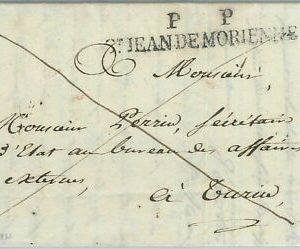 P P
St JEAN DE MORIENNE
Monsieur
Monsieur Perrin, secrétaire
d'Etat au bureau des affaires
externes,
à Turin